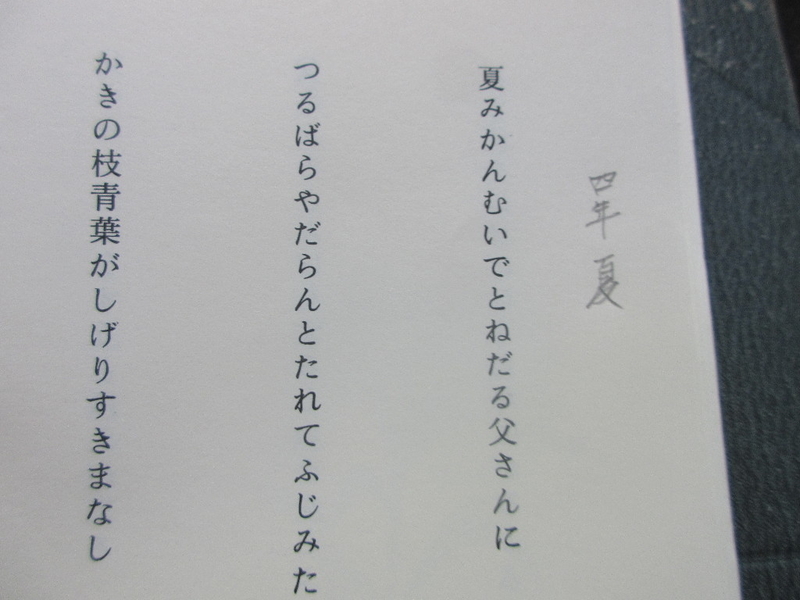 四年 夏
夏みかんむいでとねだる父さんに
つるばらやだらんとたれてふじみた
かきの枝青葉がしげりすきまなし